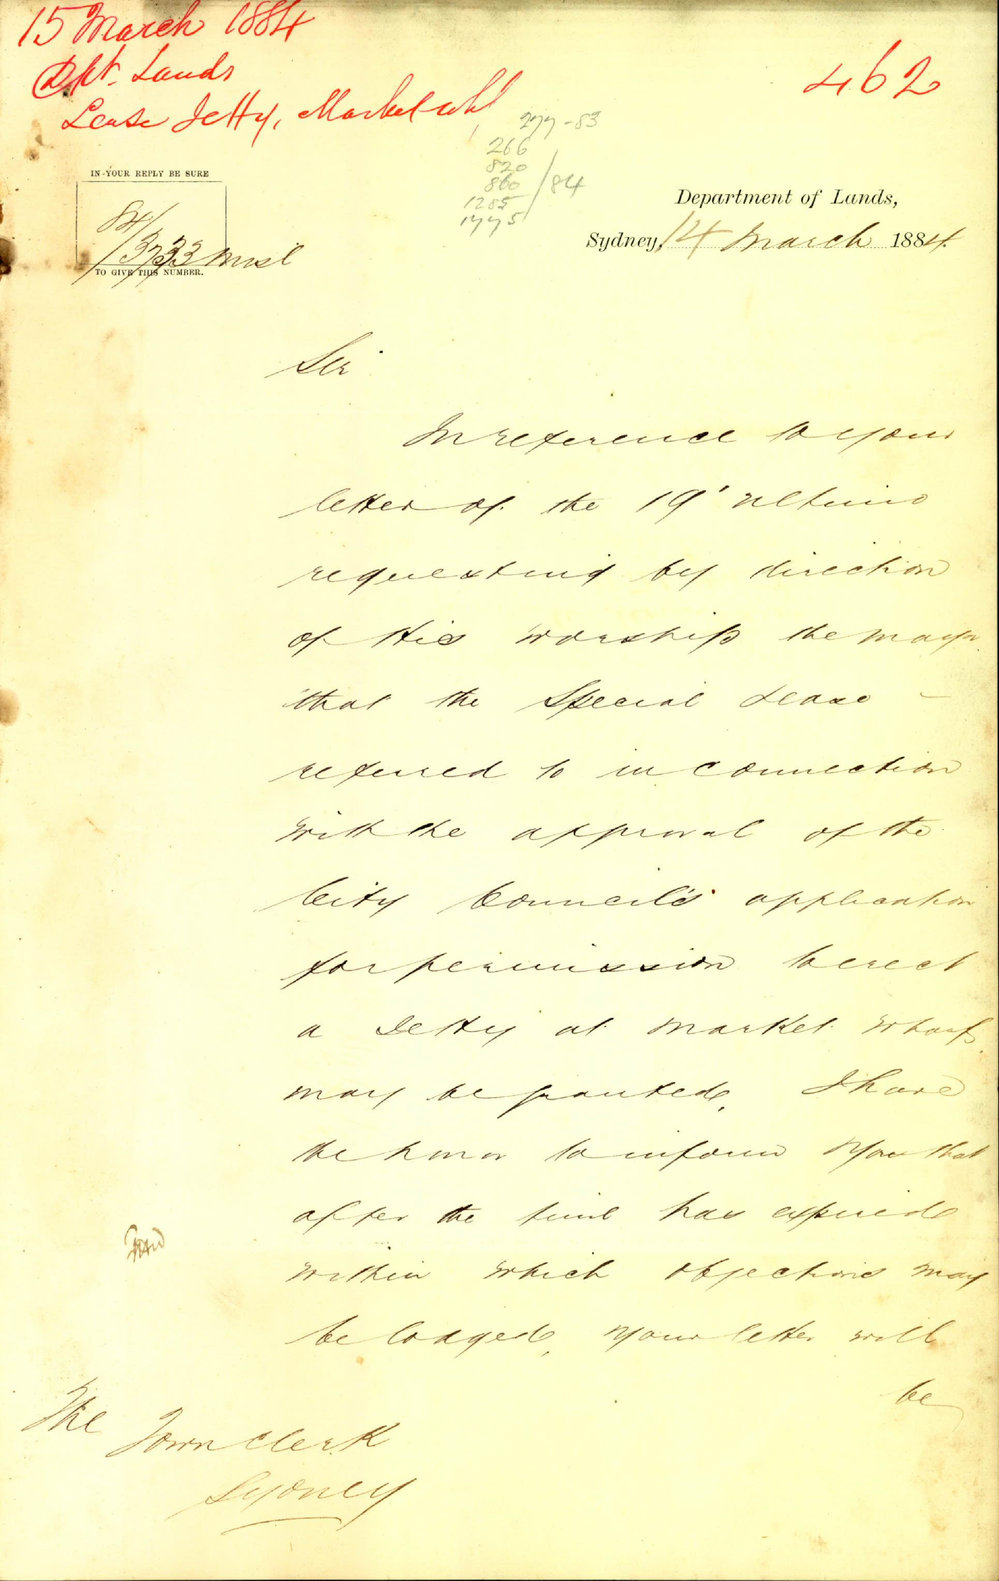 15 March 1884
Dpt. Lands
Lease Jetty, Market whf
462
277-83
266
820
860 /84
1285
1775
IN YOUR REPLY BE SURE
84/3733 Misl
TO GIVE THIS NUMBER.
Department of Lands,
Sydney, 14 March 1884.
Sir
In reference to your
letter of the 19' ultimo
requesting by direction
of His Worship the Mayor
that the Special Lease
referred to in connection
with the approval of the
City Council's application
for permission to erect
a Jetty at Market Wharf
may be granted, I have
the honor to inform you that
after the time has expired
within which objections may
be lodged, your letter will
be
The Town Clerk
Sydney